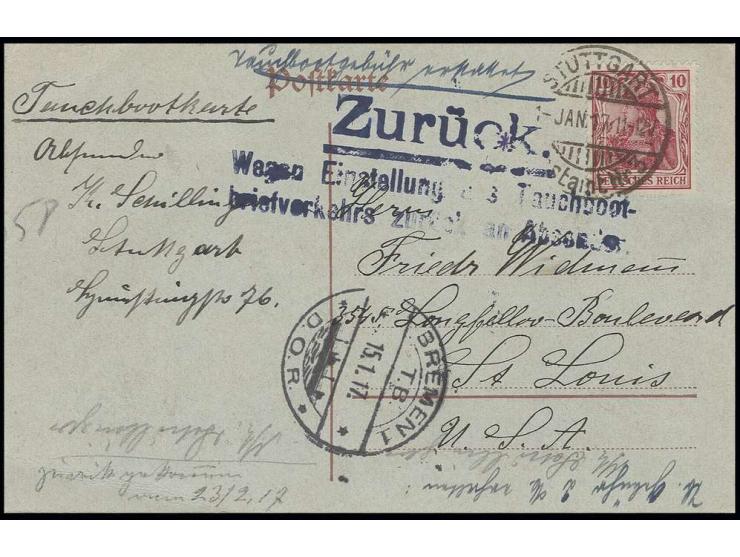 Tauchbootgebühr erstattet
Postkarte
Tauchbootkarte
STUTTGART
1-JAN.17.11-12V
10
10
DEUTSCHES REICH
Zurück.
Wegen Einstellung des Tauchboot-
briefverkehrs zurück an Absender.
Absender
K. Schilling
Stuttgart
76.
58
Herrn
Friedr Widmann
3545 Longfellow-Boulevard
St Louis
U. S. A.
BREMEN 1
T.B.
15.1.17.
D.O.R.
zurück gekommen
vom 23/2.17
erhalten: